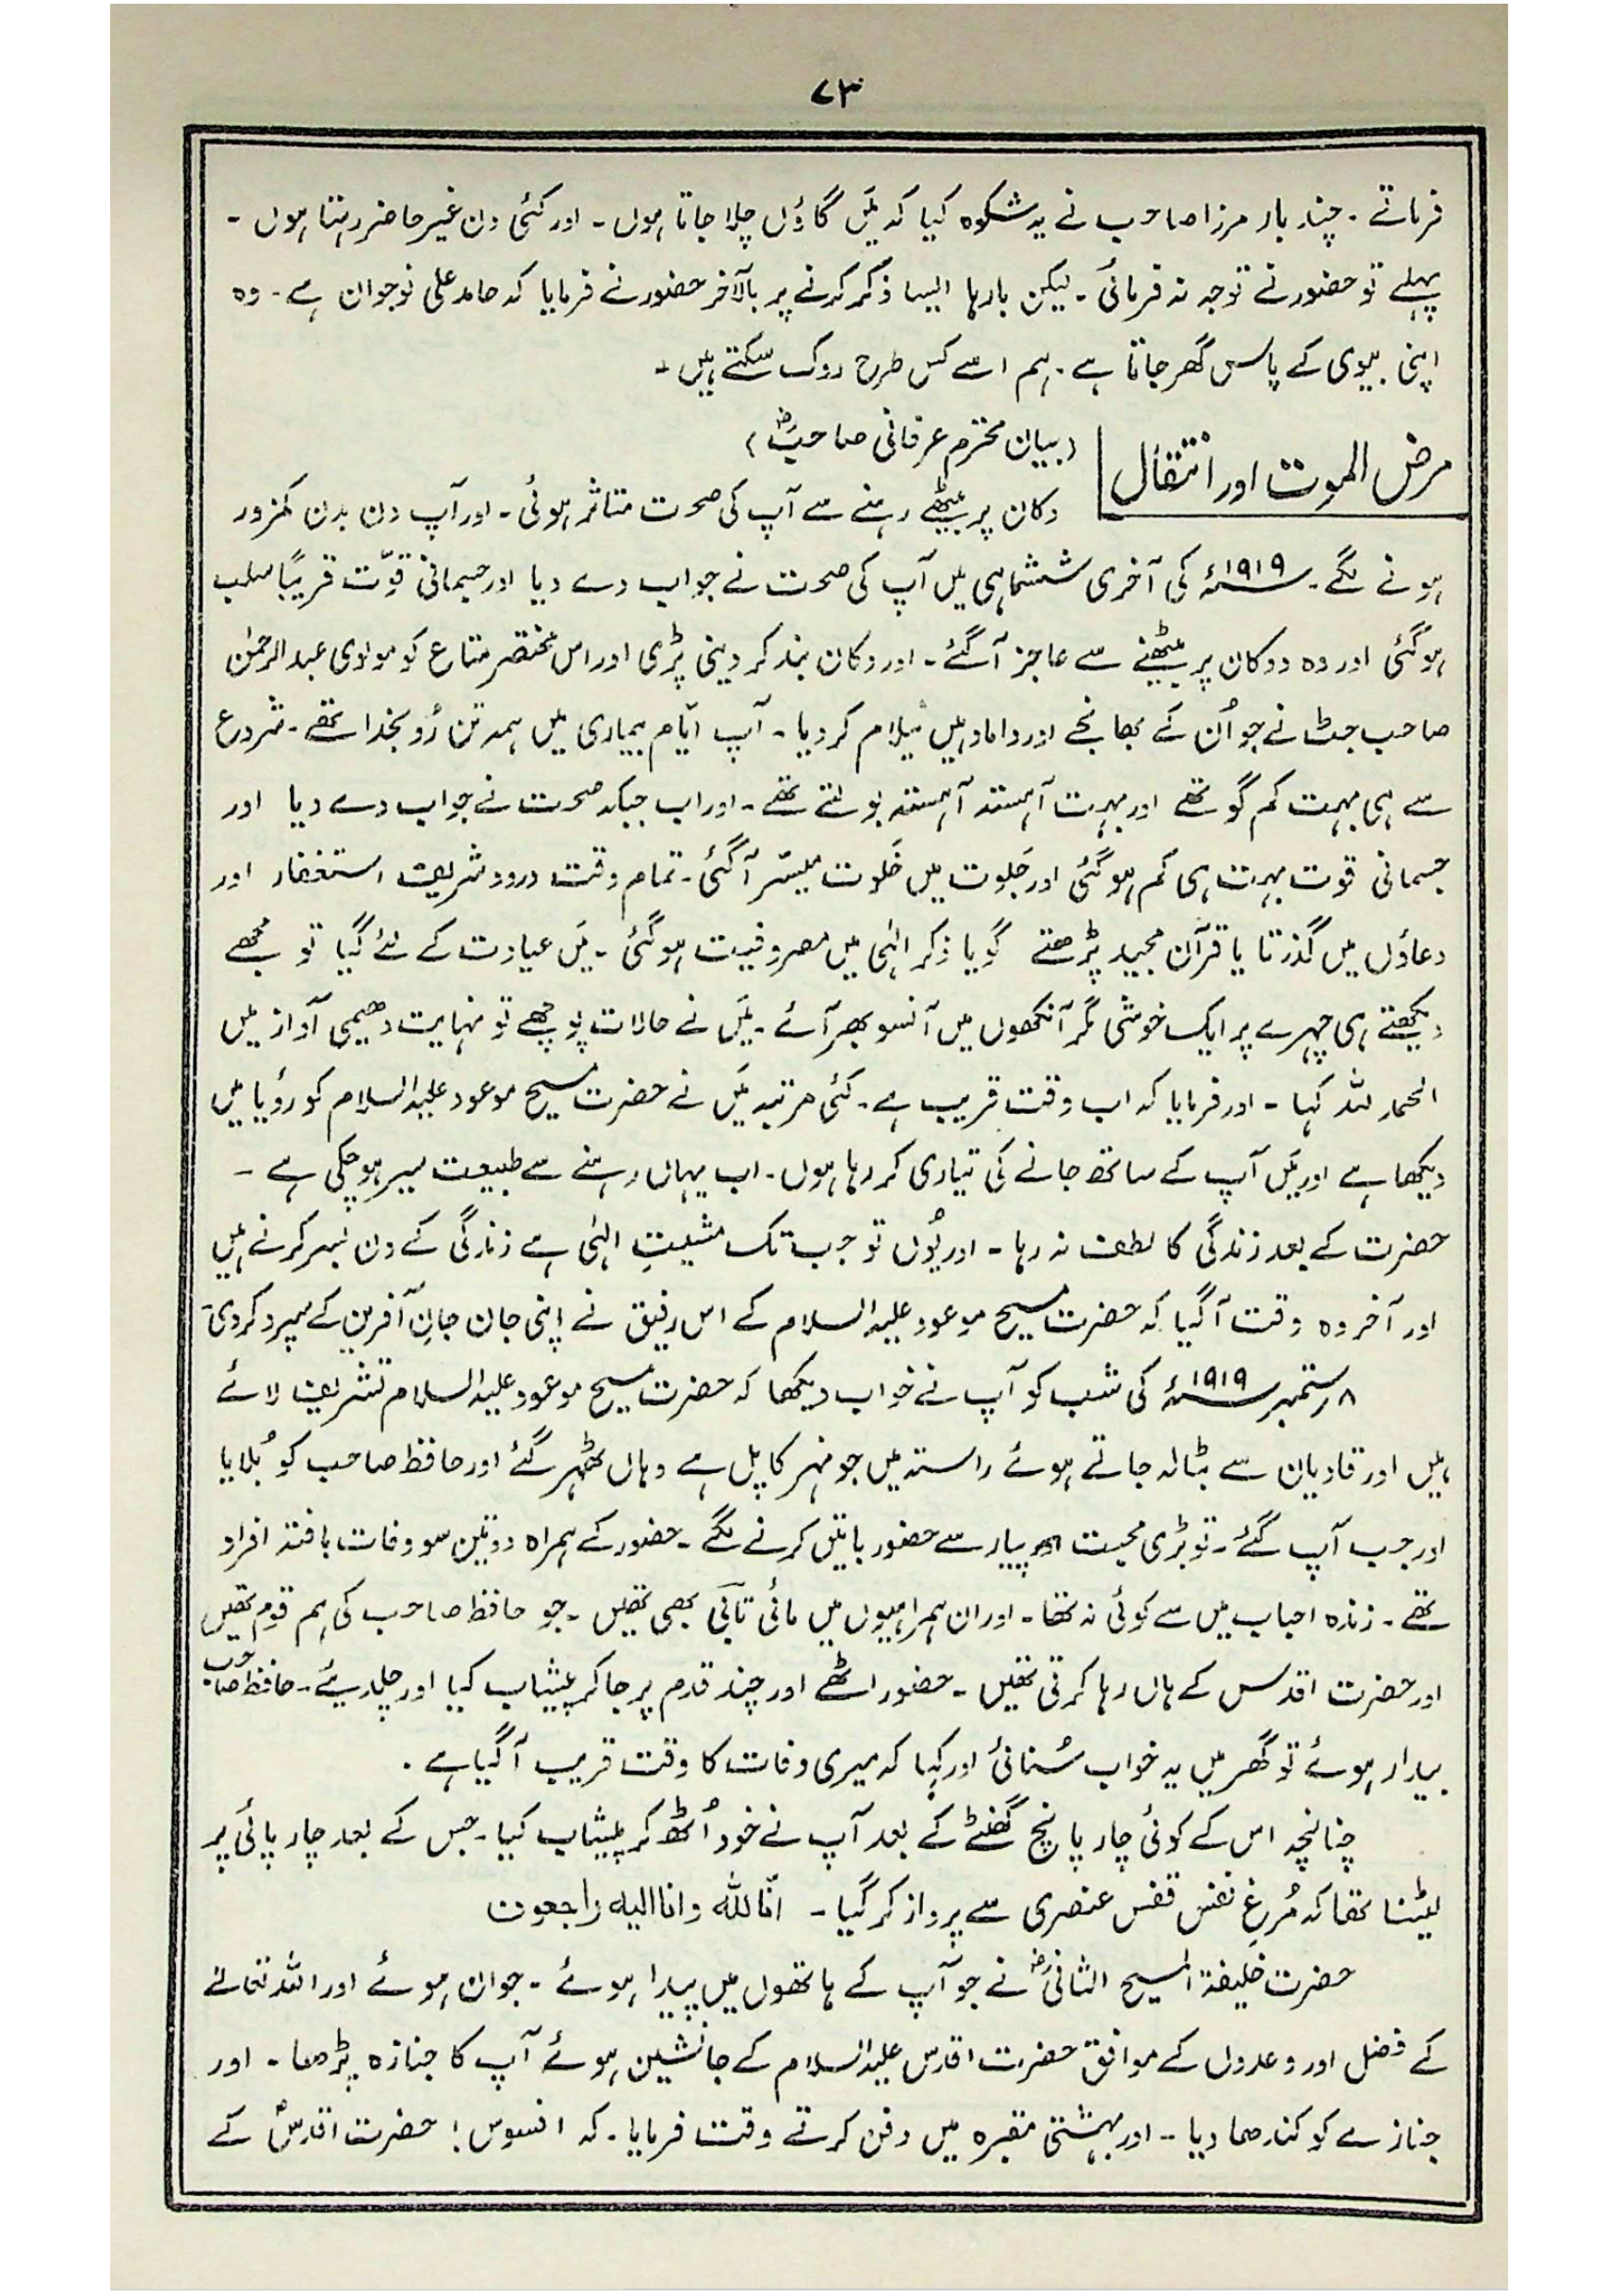 ۷۳
فرماتے ۔ چند بار مرزا صاحب نے یہ شکوہ کیا کہ مَیں گاؤں چلا جاتا ہوں ۔ اور کئی دن غیر حاضر رہتا ہوں ۔
پہلے تو حضور نے توجہ نہ فرمائی ۔ لیکن بارہا ایسا ذکر کرنے پر بالآخر حضور نے فرمایا کہ حامد علی نوجوان ہے ۔ وہ
اپنی بیوی کے پاس گھر جاتا ہے ۔ ہم اسے کس طرح روک سکتے ہیں ۔
مرض الموت اور انتقال
(بیان محترم عرفانی صاحبؓ)
دکان پر بیٹھے رہنے سے آپ کی صحت متاثر ہوئی ۔ اور آپ دن بدن کمزور
ہونے لگے ۔ ۱۹۱۹ء کی آخری ششماہی میں آپ کی صحت نے جواب دے دیا اور جسمانی قوّت قریباً سلب
ہو گئی اور وہ دوکان پر بیٹھنے سے عاجز آگئے ۔ اور دکان بند کر دینی پڑی اور اس مختصر متاع کو مولوی عبدالرحمٰن
صاحب جٹ نے جو اُن کے بھانجے اور داماد ہیں نیلام کر دیا ۔ آپ ایّام بیماری میں ہمہ تن رُو بخدا تھے ۔ شروع
سے ہی بہت کم گو تھے اور بہت آہستہ آہستہ بولتے تھے ۔ اور اب جبکہ صحت نے جواب دے دیا اور
جسمانی قوت بہت ہی کم ہو گئی اور جَلوت میں خَلوت میسّر آگئی ۔ تمام وقت درود شریف استغفار اور
دعاؤں میں گذرتا یا قرآن مجید پڑھتے گویا ذکر الٰہی میں مصروفیت ہو گئی ۔ مَیں عیادت کے لئے گیا تو مجھے
دیکھتے ہی چہرے پر ایک خوشی مگر آنکھوں میں آنسو بھر آئے ۔ مَیں نے حالات پوچھے تو نہایت دھیمی آواز میں
الحمد للہ کہا ۔ اور فرمایا کہ اب وقت قریب ہے ۔ کئی مرتبہ مَیں نے حضرت مسیح موعود علیہ السلام کو رؤیا میں
دیکھا ہے اور مَیں آپ کے ساتھ جانے کی تیاری کر رہا ہوں ۔ اب یہاں رہنے سے طبیعت سیر ہو چکی ہے ۔
حضرت کے بعد زندگی کا لطف نہ رہا ۔ اور یُوں تو جب تک مشیتِ الٰہی ہے زندگی کے دن بسر کرنے ہیں
اور آخر وہ وقت آگیا کہ حضرت مسیح موعود علیہ السلام کے اس رفیق نے اپنی جان جانِ آفرین کے سپرد کر دی ۔
۸ ستمبر ۱۹۱۹ء کی شب کو آپ نے خواب دیکھا کہ حضرت مسیح موعود علیہ السلام تشریف لائے
ہیں اور قادیان سے بٹالہ جاتے ہوئے راستہ میں جو نہر کا پل ہے وہاں ٹھہر گئے اور حافظ صاحب کو بُلایا
اور جب آپ گئے ۔ تو بڑی محبت اور پیار سے حضور باتیں کرنے لگے ۔ حضور کے ہمراہ دو تین سو وفات یافتہ افراد
تھے ۔ زندہ احباب میں سے کوئی نہ تھا ۔ اور ان ہمراہیوں میں مائی تابی بھی تھیں ۔ جو حافظ صاحب کی ہم قوم تھیں
اور حضرت اقدس کے ہاں رہا کرتی تھیں ۔ حضور اٹھے اور چند قدم پر جا کر پیشاب کیا اور چل دیئے ۔ حافظ صاحب
بیدار ہوئے تو گھر میں یہ خواب سُنائی اور کہا کہ میری وفات کا وقت قریب آگیا ہے ۔
چنانچہ اس کے کوئی چار پانچ گھنٹے کے بعد آپ نے خود اُٹھ کر پیشاب کیا ۔ جس کے بعد چارپائی پر
لیٹنا تھا کہ مُرغِ نفس قفس عنصری سے پرواز کر گیا ۔ انّا للّٰہ وانا الیہ راجعون
حضرت خلیفۃ المسیح الثانیؓ نے جو آپ کے ہاتھوں میں پیدا ہوئے ۔ جوان ہوئے اور اللہ تعالےٰ
کے فضل اور وعدوں کے موافق حضرت اقدس علیہ السلام کے جانشین ہوئے آپ کا جنازہ پڑھا ۔ اور
جنازے کو کندھا دیا ۔ اور بہشتی مقبرہ میں دفن کرتے وقت فرمایا ۔ کہ افسوس ! حضرت اقدسؑ کے